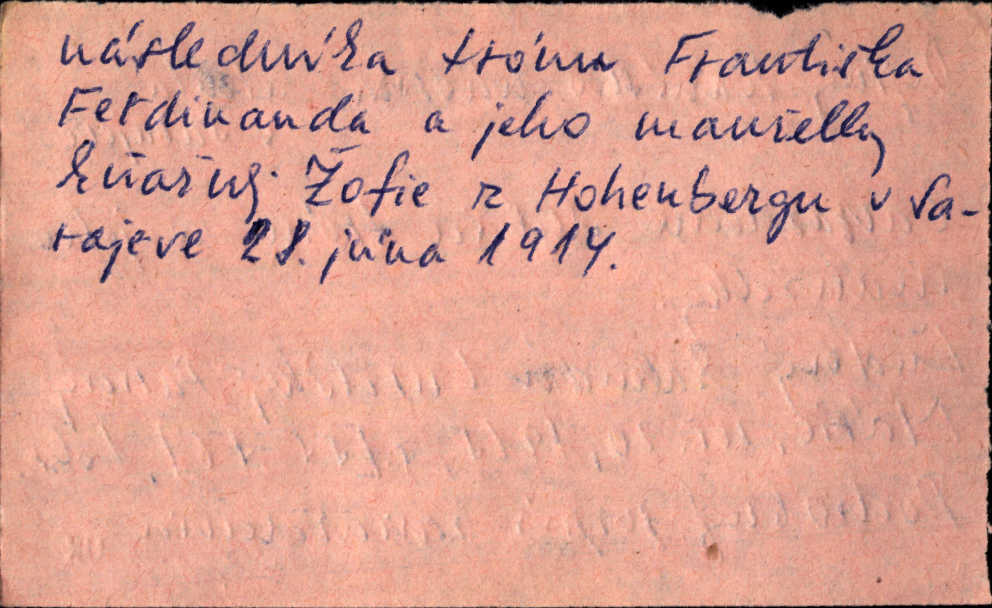 následníka trónu Františka
Ferdinanda a jeho manželky
kňažny Žofie z Hohenbergu v Sa-
rajeve 28. júna 1914.